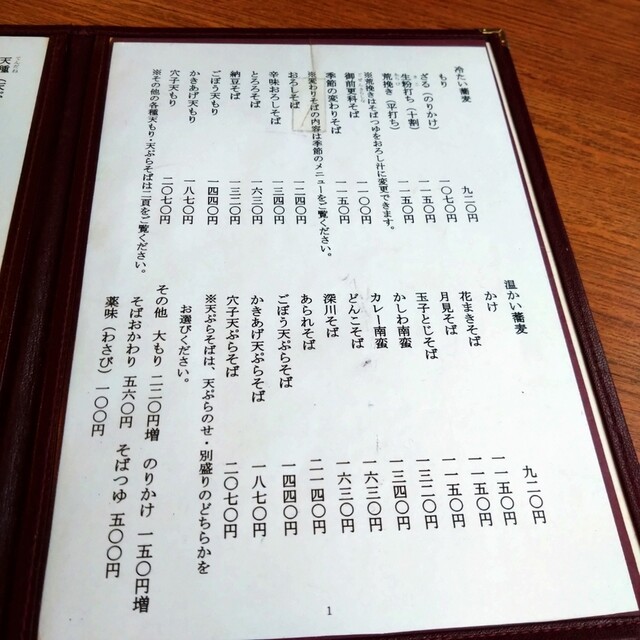 冷たい蕎麦
もり 九二〇円
ざる（のりかけ） 一〇七〇円
生粉打ち（十割） 一一五〇円
荒挽き（平打ち） 一一五〇円
※荒挽きはそばつゆをおろし汁に変更できます。
御前更科そば 一一〇〇円
季節の変わりそば 一一五〇円
※変わりそばの内容は季節のメニューをご覧ください。
おろしそば 一二四〇円
辛味おろしそば 一三四〇円
とろろそば 一六三〇円
納豆そば 一三二〇円
ごぼう天もり 一四四〇円
かきあげ天もり 一八七〇円
穴子天もり 二〇七〇円
※その他の各種天もり・天ぷらそばは二頁をご覧ください。
温かい蕎麦
かけ 九二〇円
花まきそば 一一五〇円
月見そば 一一五〇円
玉子とじそば 一一五〇円
かしわ南蛮 一三二〇円
カレー南蛮 一三四〇円
どんこそば 一六三〇円
深川そば 一六三〇円
あられそば 二一四〇円
ごぼう天ぷらそば 一四四〇円
かきあげ天ぷらそば 一八七〇円
穴子天ぷらそば 二〇七〇円
※天ぷらそばは、天ぷらのせ・別盛りのどちらかを
お選びください。
その他 大もり 二二〇円増 のりかけ 一五〇円増
そばおかわり 五六〇円 そばつゆ 五〇〇円
薬味（わさび）一〇〇円
1
天種